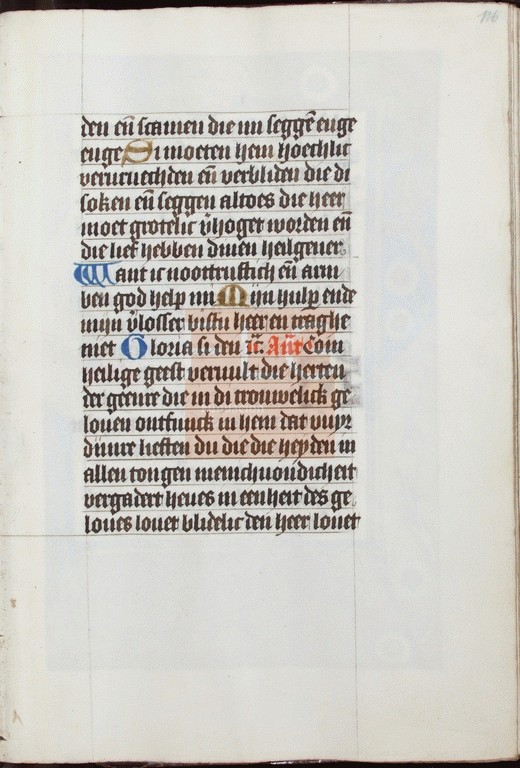 116
den en̄ scamen die mi seggē euge
euge Si moeten hem hoechlic
vervruechden en̄ verbliden die di
soken en̄ seggen altoes die heer
moet grotelic v̄hoget worden en̄
die lief hebben dinen heilgever
Want ic noottruftich en̄ arm
ben god help mi Mijn hulp ende
mijn v̄losser bistu heer en traghe
niet Gloria si den Ant. Com
heilige geest vervult die herten
der geenre die in di trouwelick ge
loven ontfunck in hem dat vuyr
dijnre lieften du die die heyden in
allen tongen menichvoudicheit
vergadert heves in eenheit des ge
loves lovet blidelic den heer lovet